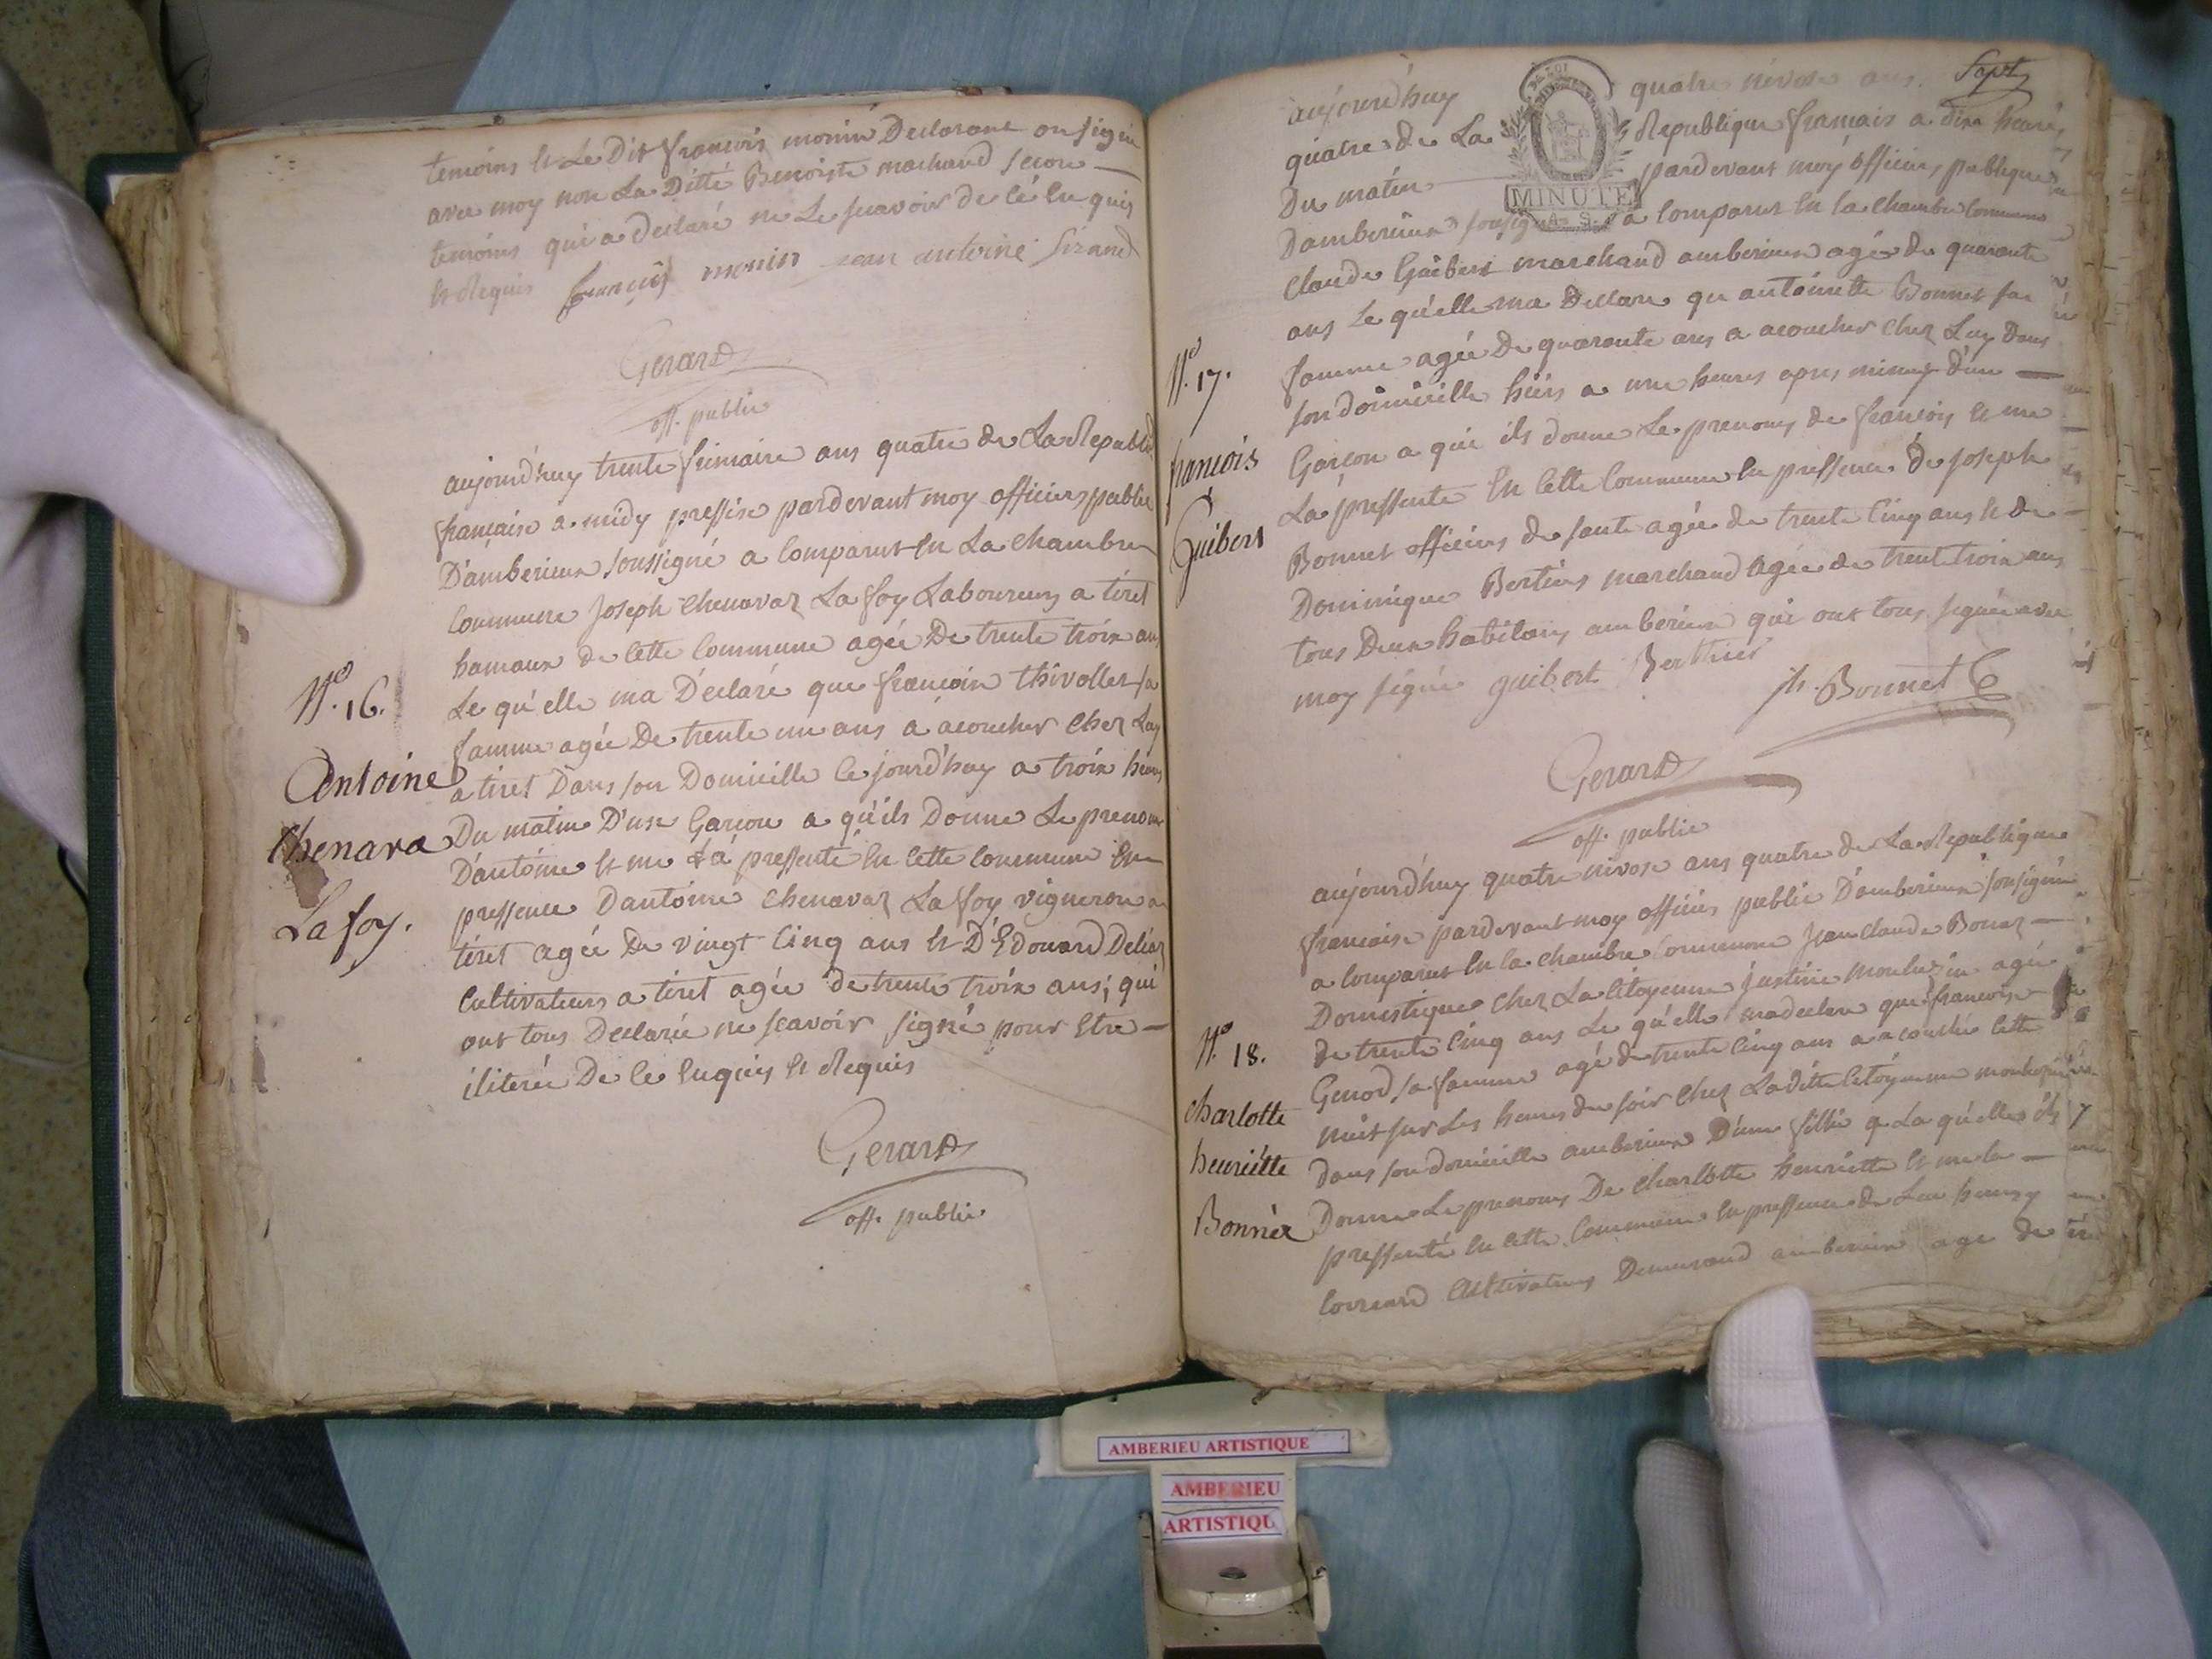 temoins et Le Dit francois monin Declarant on signé
avec moy non La Ditte Benoiste marchand secon
temoins qui a declaré ne Le scavoir de cé En quis
et Requis francois monin jean antoine Sirand
Gerard
off. public
aujourd'huy trente frimaire ans quatre de La Republi
française a midy pressise pardevant moy officiers public
D'amberieux soussigné a Comparut En La Chambre
Commune Joseph Chenavaz La foy Laboureurs a tiret
hamaux de Cette Commune agée De trente troix ans
N.º 16.
Le qu'elle ma Déclaré que francoise thivollet sa
famme agée De trente un ans a acoucher Chez Luy
Antoine
a tiret Dans son Domicille Ce jourd'huy a troix heures
Chenava
Du matin D'un Garcon a qu'ils Donne Le prenom
D'antoine et me La pressenté En Cette Commune En
pressence Dantoine Chenavaz La foy vigneron a
La foy.
tiret agée De vingt Cinq ans et D'Edouard
Cultivateurs a tiret agée de trente troix ans; qui
ont tous Declarée ne scavoir signé pour Etre
iliterée De Ce Enquis et Requis
Gerard
off. public
Sept
aujourd'huy quatre nivose ans
quatre de La Republique francais a dix heures
Du matin pardevant moy officiers publique
Damberieux soussigné a Comparut En la Chambre Commune
Claude Guibert marchand amberieux agée de quarante
ans Le qu'elle ma Declare que antoinette Bonnet sa
N.º 17.
famme agée De quarante ans a acoucher Chez Luy Dans
son domicille hiers a une heures apres minuy d'un
francois
Garcon a qui ils donne Le prenoms de francois et me
La pressente En Cette Commune En pressence de Joseph
Guibert
Bonnet officiers de sante agée de trente Cinq ans et de
Dominique Bertiers marchand agée de trente troix ans
tous Deux habitans amberieux qui ont tous signée avec
moy signée guibert Berthier
jh. Bonnet
Gerard
off. public
aujourd'huy quatre nivose ans quatre de La Republique
francaise pardevant moy officiers public D'amberieux soussignée
a Comparut En la Chambre Commune Jean Claude Bonaz
Domestique Chez La Citoyenne Justine agée
de trente Cinq ans Le qu'elle ma declare que francoise
N.º 18.
Genod sa famme agé de trente Cinq ans a acouchée Cette
nuit sur Les heures du soir Chez Laditte Citoyenne
Charlotte
dans son domicille amberieux D'une fillie a La qu'elle ils
henriëtte
Donne Le prenoms De Charlotte henriette et me la
Bonnér
pressenté En Cette Commune En pressence de
Cultivateurs Demeurand amberieux age de
MINUTE
A. S.
AMBERIEU ARTISTIQUE
AMBERIEU
ARTISTIQU